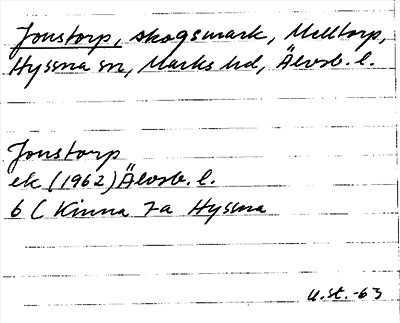 Jonstorp, skogsmark, Melltorp,
Hyssna sn, Marks hd, Älvsb. l.
Jonstorp
ek (1962) Älvsb. l.
6 C Kinna 7a Hyssna
u.st.-63